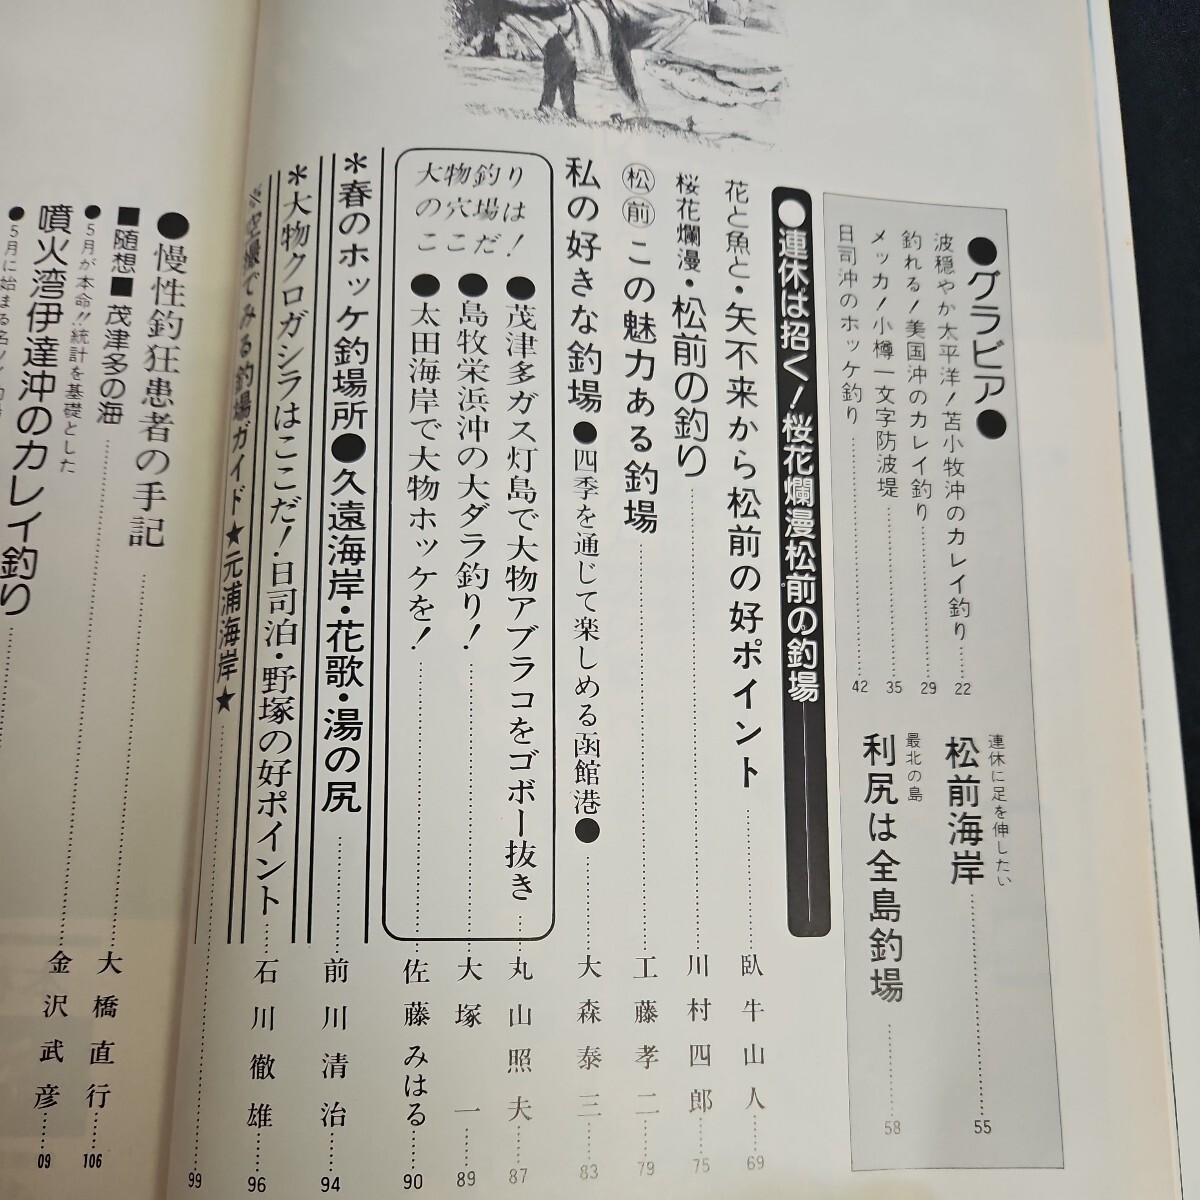 ●グラビア●
波穏やか太平洋!苫小牧沖のカレイ釣り……22
釣れる!美国沖のカレイ釣り……29
メッカ!小樽一文字防波堤……35
日司沖のホッケ釣り……42
連休に足を伸したい
松前海岸……55
最北の島
利尻は全島釣場……58
●連休は招く!桜花爛漫松前の釣場
花と魚と・矢不来から松前の好ポイント……臥牛山人……69
桜花爛漫・松前の釣り……川村四郎……75
松前この魅力ある釣場……工藤孝二……79
私の好きな釣場●四季を通じて楽しめる函館港●……大森泰三……83
大物釣りの穴場はここだ!
●茂津多ガス灯島で大物アブラコをゴボー抜き……丸山照夫……87
●島牧栄浜沖の大ダラ釣り!……大塚一……89
●太田海岸で大物ホッケを!……佐藤みはる……90
*春のホッケ釣場所●久遠海岸・花歌・湯の尻……前川清治……94
*大物クロガシラはここだ!日司泊・野塚の好ポイント……石川徹雄……96
※空撮でみる釣場ガイド★元浦海岸★……99
●慢性釣狂患者の手記
■随想■茂津多の海……大橋直行……106
●5月が本命!!統計を基礎とした
噴火湾伊達沖のカレイ釣り……金沢武彦……09
●5月に始まる